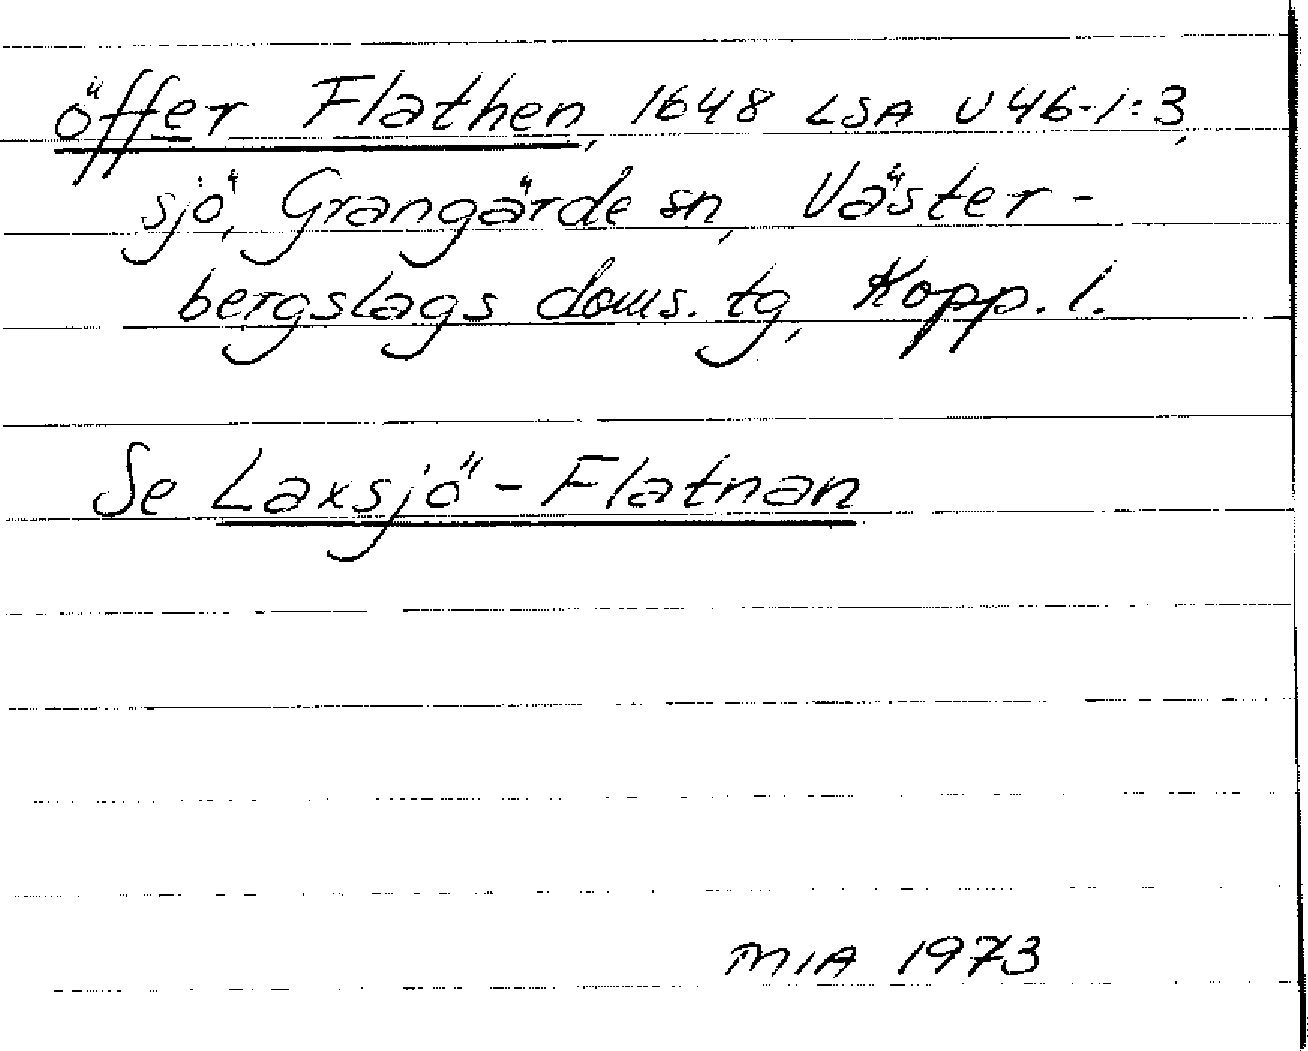 öffer Flathen, 1648 LSA U 46-1:3,
sjö, Grangärde sn, Väster-
bergslags doms. tg, Kopp. l.
Se Laxsjö-Flatnan
MIA 1973